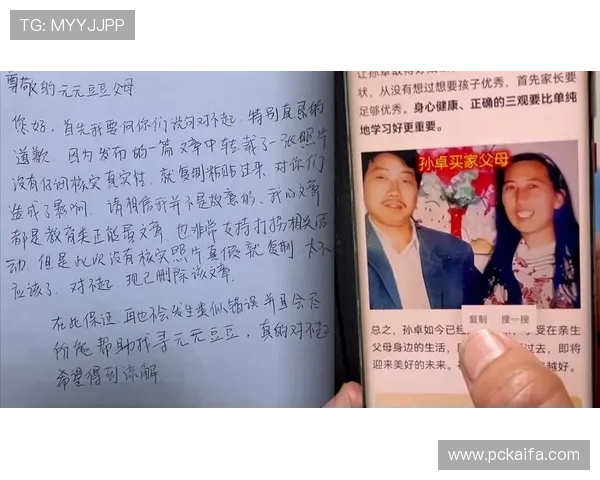 TG: MYYJJPP
尊敬的元元豆豆父母
您好，首先我要向你们说句对不起，特别真恳的
道歉 因为发布的一篇文章中转载了一张照片
没有仔细核实真实性，就复制粘贴过来，对你们
造成了影响，请相信我并不是故意的，我的文章
都是教育类正能量文章，也非常支持打拐相关活
动，但是此次没有核实照片真假就复制，太不
应该了，对不起，现已删除该文章.
在此保证，再也不会发生类似错误并且会尽
所能帮助找寻元元豆豆，真的对不起
希望得到谅解
让孙卓取得好成
状，从没有想过想要孩子优秀，首先家长要
足够优秀。身心健康、正确的三观要比单纯
地学习好更重要。
孙卓买家父母
复制 搜一搜
总之，孙卓如今已经 受在亲生
父母身边的生活， 过去，即将
迎来美好的未来。 越好。
www.pckaifa.com